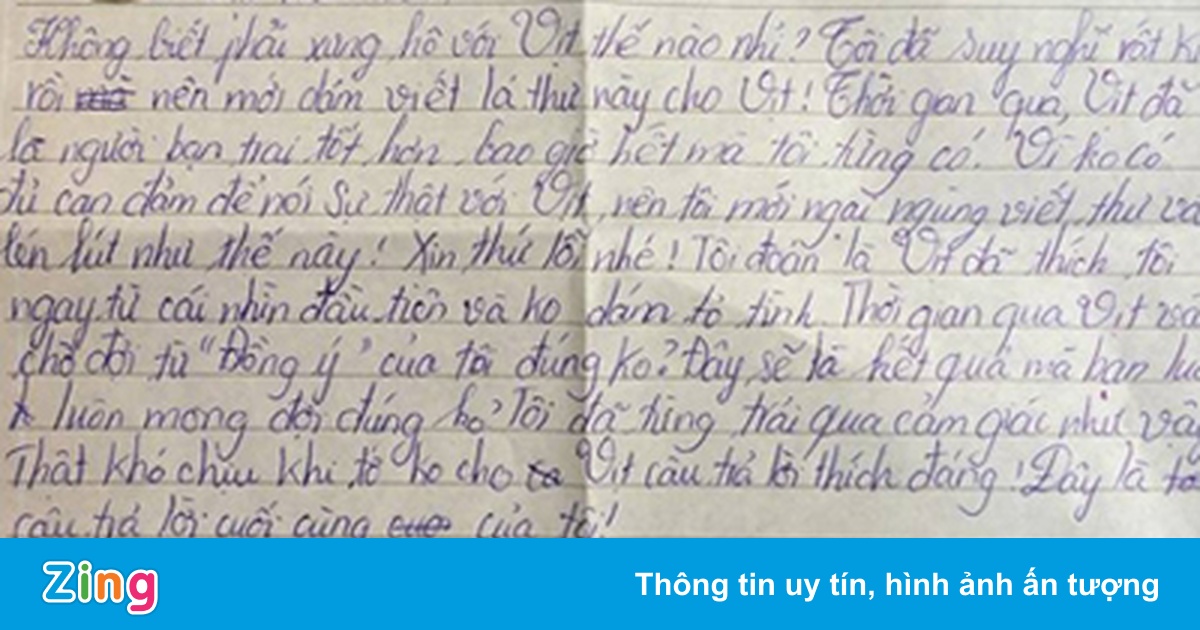 Không biết phải xưng hô với Vịt thế nào nhỉ? Tôi đã suy nghĩ rất k
rồi nên mới dám viết lá thư này cho Vịt! Thời gian qua, Vịt đã
là người bạn trai tốt hơn bao giờ hết mà tôi từng có. Vì ko có
đủ can đảm để nói sự thật với Vịt, nên tôi mới ngại ngùng viết thư và
lén lút như thế này! Xin thứ lỗi nhé! Tôi đoán là Vịt đã thích tôi
ngay từ cái nhìn đầu tiên và ko dám tỏ tình. Thời gian qua Vịt vẫ
chờ đợi từ "Đồng ý" của tôi đúng ko? Đây sẽ là kết quả mà bạn lu
luôn mong đợi đúng ko? Tôi đã từng trải qua cảm giác như vậ
Thật khó chịu khi tớ ko cho Vịt câu trả lời thích đáng! Đây là
câu trả lời cuối cùng của tôi!
Zing
Thông tin uy tín, hình ảnh ấn tượng